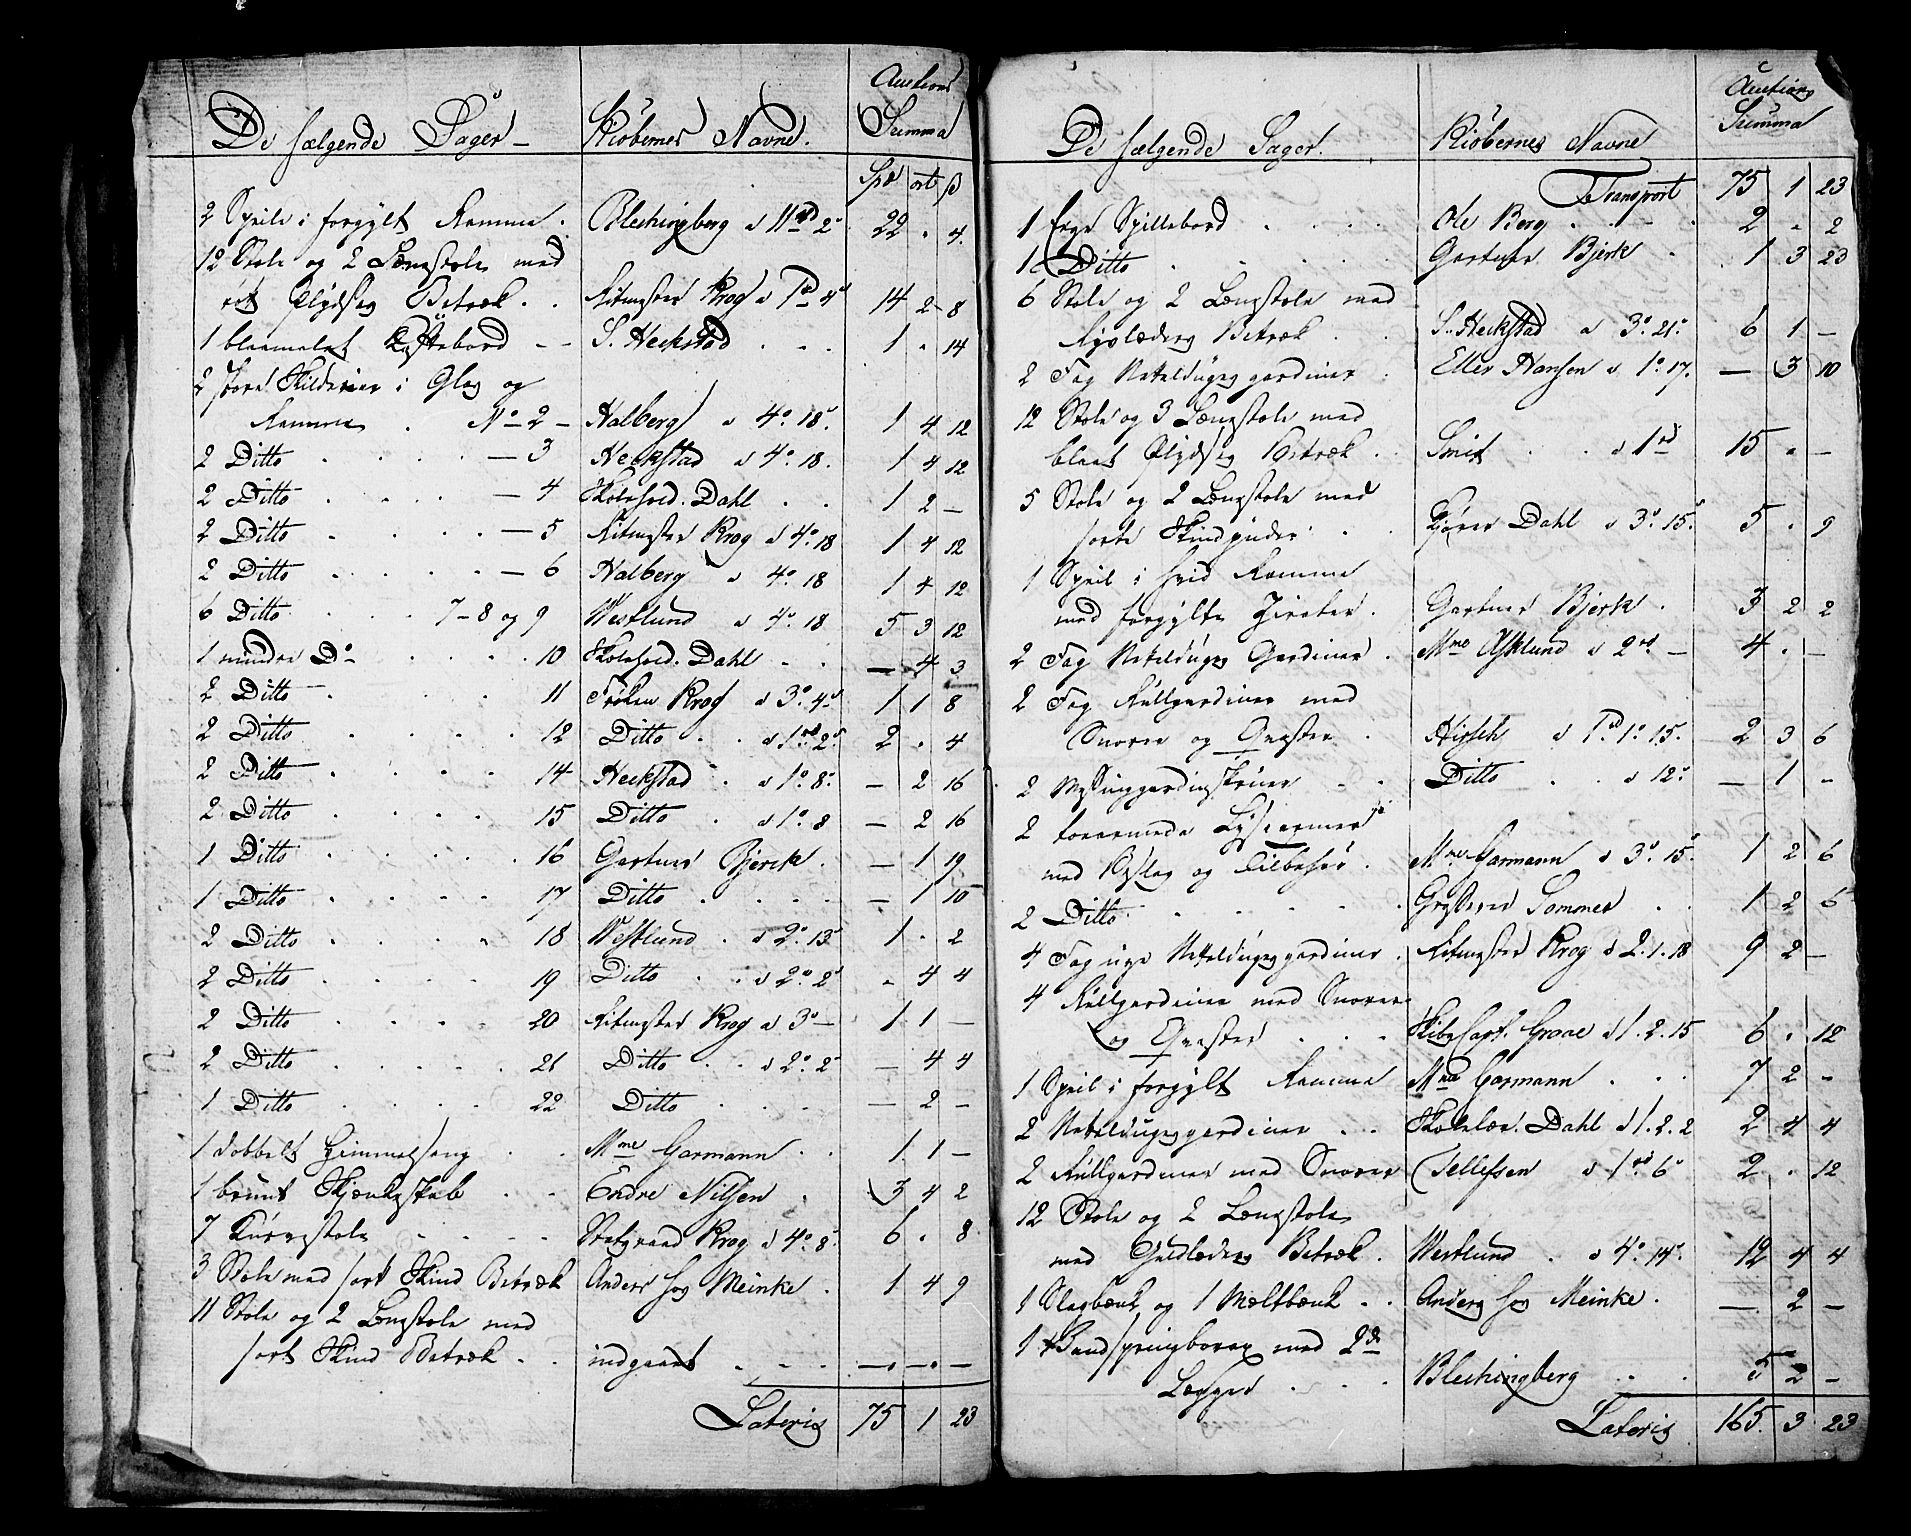 De sælgende Sager – Kiöbernes Navne. Auctions Summa
Spe ort ß
2 Speile i forgylt Ramme . Blechingberg a 11rd 2s 22 . 4.
12 Stole og 2 Lænestole med
rødt Plydses Betræk . . Ritmester Krog a 1rd 4s 14 2 – 8
1 blaamalet Kistebord – – S. Heckstad . . . 1 . 14
2 store Skilderier i Glas og
Ramme . No 2 – Halberg a 4o 18s. 1 4 12
2 Ditto . . . . – 3 Heckstad a 4o. 18. 1 4 12
2 Ditto . . . . – 4 Skolehold. Dahl . . 1 2 –
2 Ditto . . . . – 5 Ritmester Krog a 4o. 18 1 4 12
2 Ditto . . . . – 6 Halberg a 4o. 18 1 4 12
6 Ditto . . 7 – 8 og 9 Westlund a 4o. 18 5 3 12
1 mindre Do . . . . 10 Skolehold. Dahl . . – 4 3
2 Ditto . . . . 11 Frøken Krog a 3o. 4s 1 1 8
2 Ditto . . . . 12 Ditto . . a 1rd 2s. 2 . 4
2 Ditto . . . . 14 Heckstad . a 1o. 8s. – 2 16
2 Ditto . . . . 15 Ditto . a 1o. 8 – 2 16
1 Ditto . . . . 16 Gartner Bjerck . – 1 19
1 Ditto . . . . 17 Ditto . . . . – 1 10
2 Ditto . . . . 18 Westlund . a 2o. 13s 1 . 2
2 Ditto . . . . 19 Ditto . . a 2o. 2s . 4 4
2 Ditto . . . . 20 Ritmester Krog a 3o – 1 1 –
2 Ditto . . . . 21 Ditto . . a 2o. 2s – 4 4
1 Ditto . . . . 22 Ditto . . . – 2 –
1 dobbelt Himmelseng . . Mme Garmann . . 1 1 –
1 brunt Skjænkeskab . . Endre Nilsen . 3 4 2
7 Kurvestole . . . . Statsraad Krog a 4o 8s. 6 . 8
3 Stole med sort Skind Betræk Anders hos Meinke . 1 4 9
11 Stole og 2 Lænestole med
sort Skind Betræk . . indgaaet . . . – . – . –
Lateris 75 1 23
De sælgende Sager. Kiöbernes Navne Auctions Summa
Transport 75 1 23
1 Spillebord . . . . Ole Berg . . . 2 . 2
1 Ditto . . . . Gartner Bjerk . 1 3 23
6 Stole og 2 Lænestole med
Ryslæders Betræk . . S. Heckstad a 3o. 21s. 6 1 –
2 Fag Neteldugs gardiner . Eller Hansen a 1o. 17. – 3 10
12 Stole og 3 Lænestole med
blaat Plydses Betræk . . Smit . . a 1rd 15 . –
5 Stole og 2 Lænestole med
sorte Skindpuder . . Dahl a 3o. 15s. 5 . 9
1 Speil i hvid Ramme
med forgylte Zirater . Gartner Bjerk . 3 2 2
2 Fag Neteldugs Gardiner . Mme Asklund a 2rd – 4 . –
2 Fag Rullgardiner med
Snorer og Qvaster . Hirsch a 1rd. 1o. 15. 2 3 6
2 Messinggardinskruer . . Ditto . . a 12s – 1 –
2 Lysearmer
med Beslag og Tilbehør . Mme Garmann a 3o. 15s. 1 2 6
2 Ditto . . . . . Sommer . . 1 2 6
4 Fag nye Neteldugsgardiner . Ritmester Krog a 2. 1. 18 9 2 –
4 Rullgardiner med Snorer
og Qvaster . . . Skibs Capt. Graae a 1. 2. 15 6 . 12
1 Speil i forgylt Ramme Mme Garmann . . . 7 2 –
2 Neteldugsgardiner . . . Skolelær. Dahl a 1. 2. 2 2 4 4
2 Rullgardiner med Snorer Tellefsen a 1rd 6s 2 . 12
12 Stole og 2 Lænestole
med Gyldlæders Betræk . Westlund . a 4o. 14s. 12 4 4
1 Slagbænk og 1 Mæltbænk . . Anders hos Meinke . – . 2 –
1 med 2de
Lægger . . . Blechingberg . . . 5 2 –
Lateris 165. 3 23